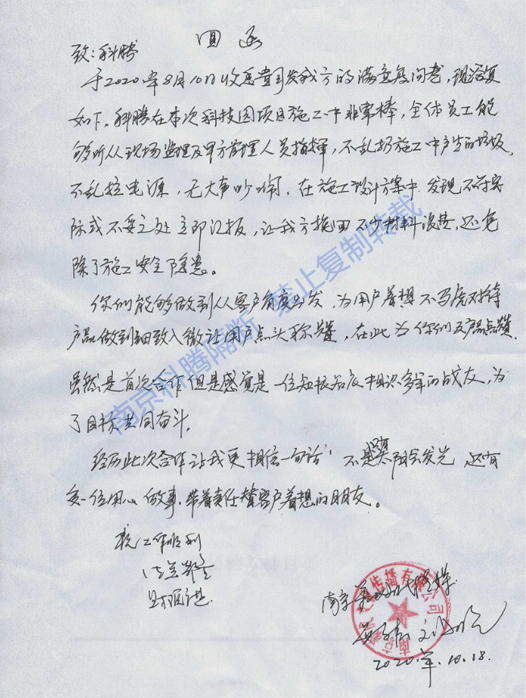 回函
致：科腾
于2020年8月10日收悉贵司发我方的满意度问卷，现答复
如下。科腾在本次科技园项目施工中非常棒，全体员工能
够听从现场监理及甲方管理人员指挥，不乱扔施工中产生的垃圾，
不乱拉电源，无大声吵闹，在施工设计方案中，发现不符实
际或不妥之处立即汇报，让我方挽回不少材料浪费，还免
除了施工安全隐患。
你们能够做到从客户角度出发，为用户着想不马虎对待
产品做到细致入微让用户点头称赞，在此为你们产品点赞。
虽然是首次合作但是感觉是一位知根知底相识多年的战友，为
了目标共同奋斗。
经历此次合作让我更相信一句话"不是太阳会发光，还有
一位用心做事、带着责任替客户着想的朋友。
祝工作顺利
南京
2020年.10.18.
南京科腾隔断 禁止复制转载